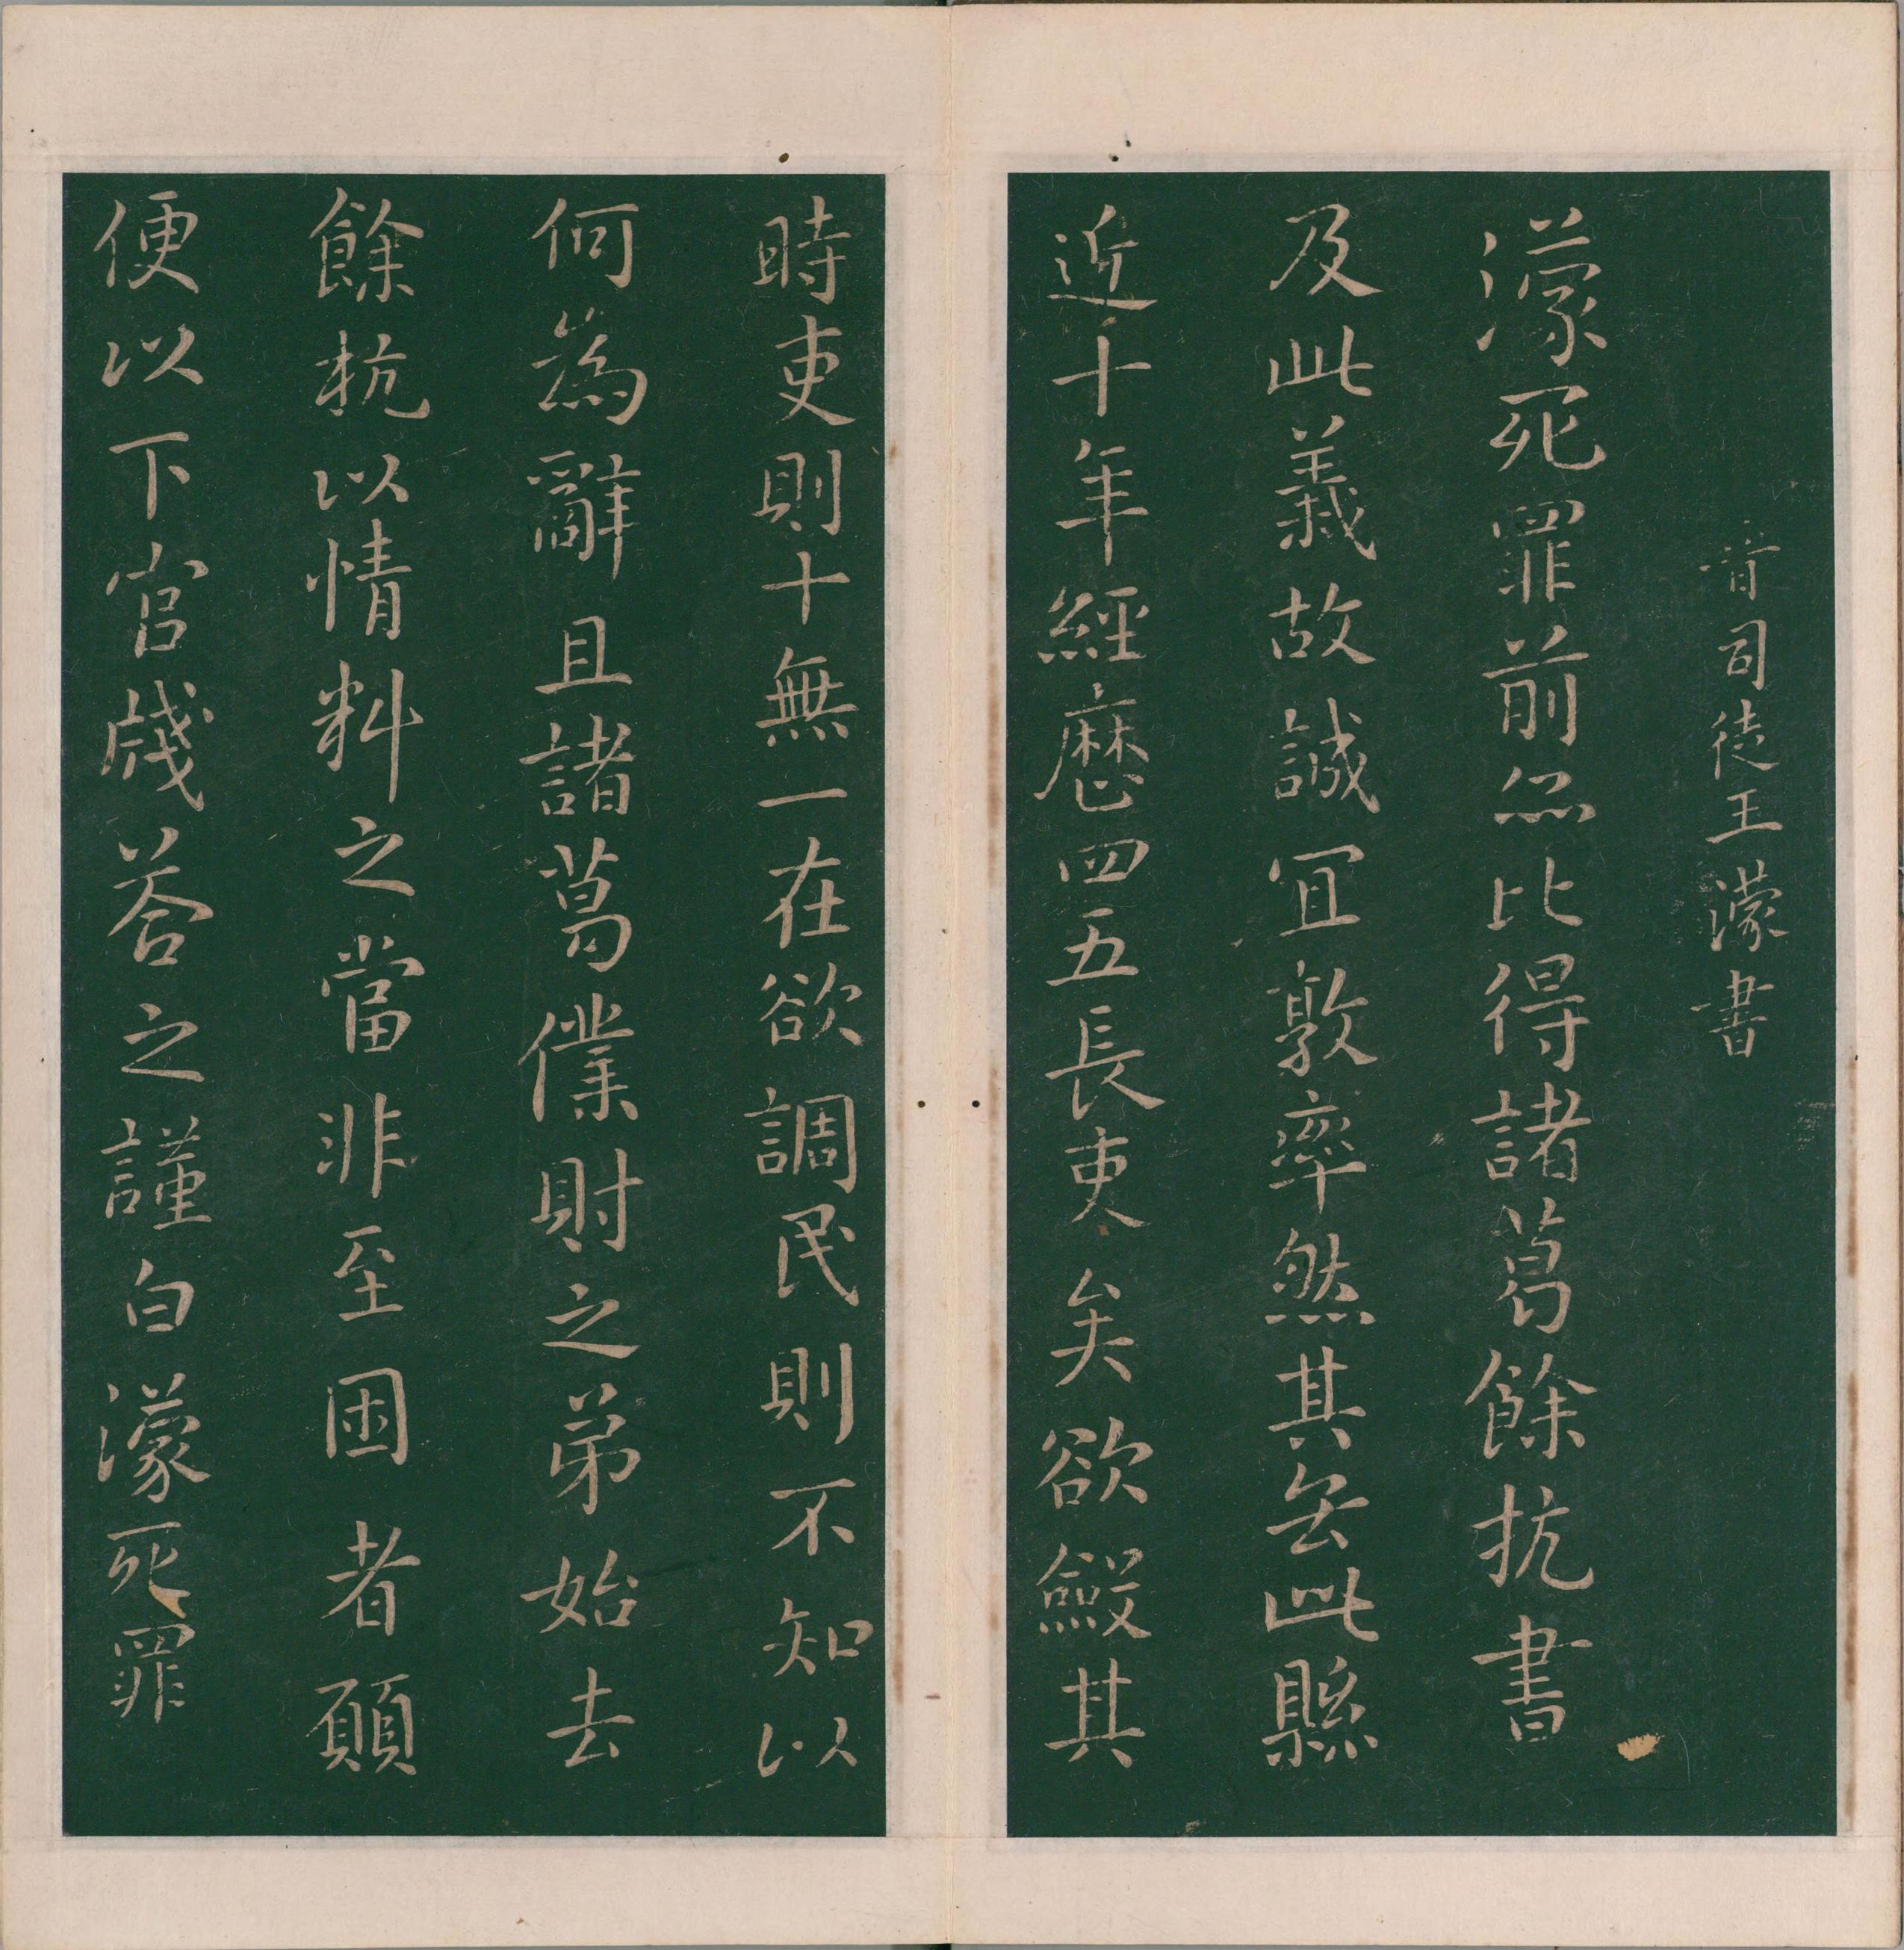 晉司徒王濛書
濛死罪前亦比得諸葛餘抗書
及此義故誠宜敦率然其去此縣
近十年經歷四五長吏矣欲斂其
時吏則十無一在欲調民則不知以
何為辭且諸葛僕財之弟始去
餘杭以情料之當非至困者願
便以下官牋答之謹白濛死罪